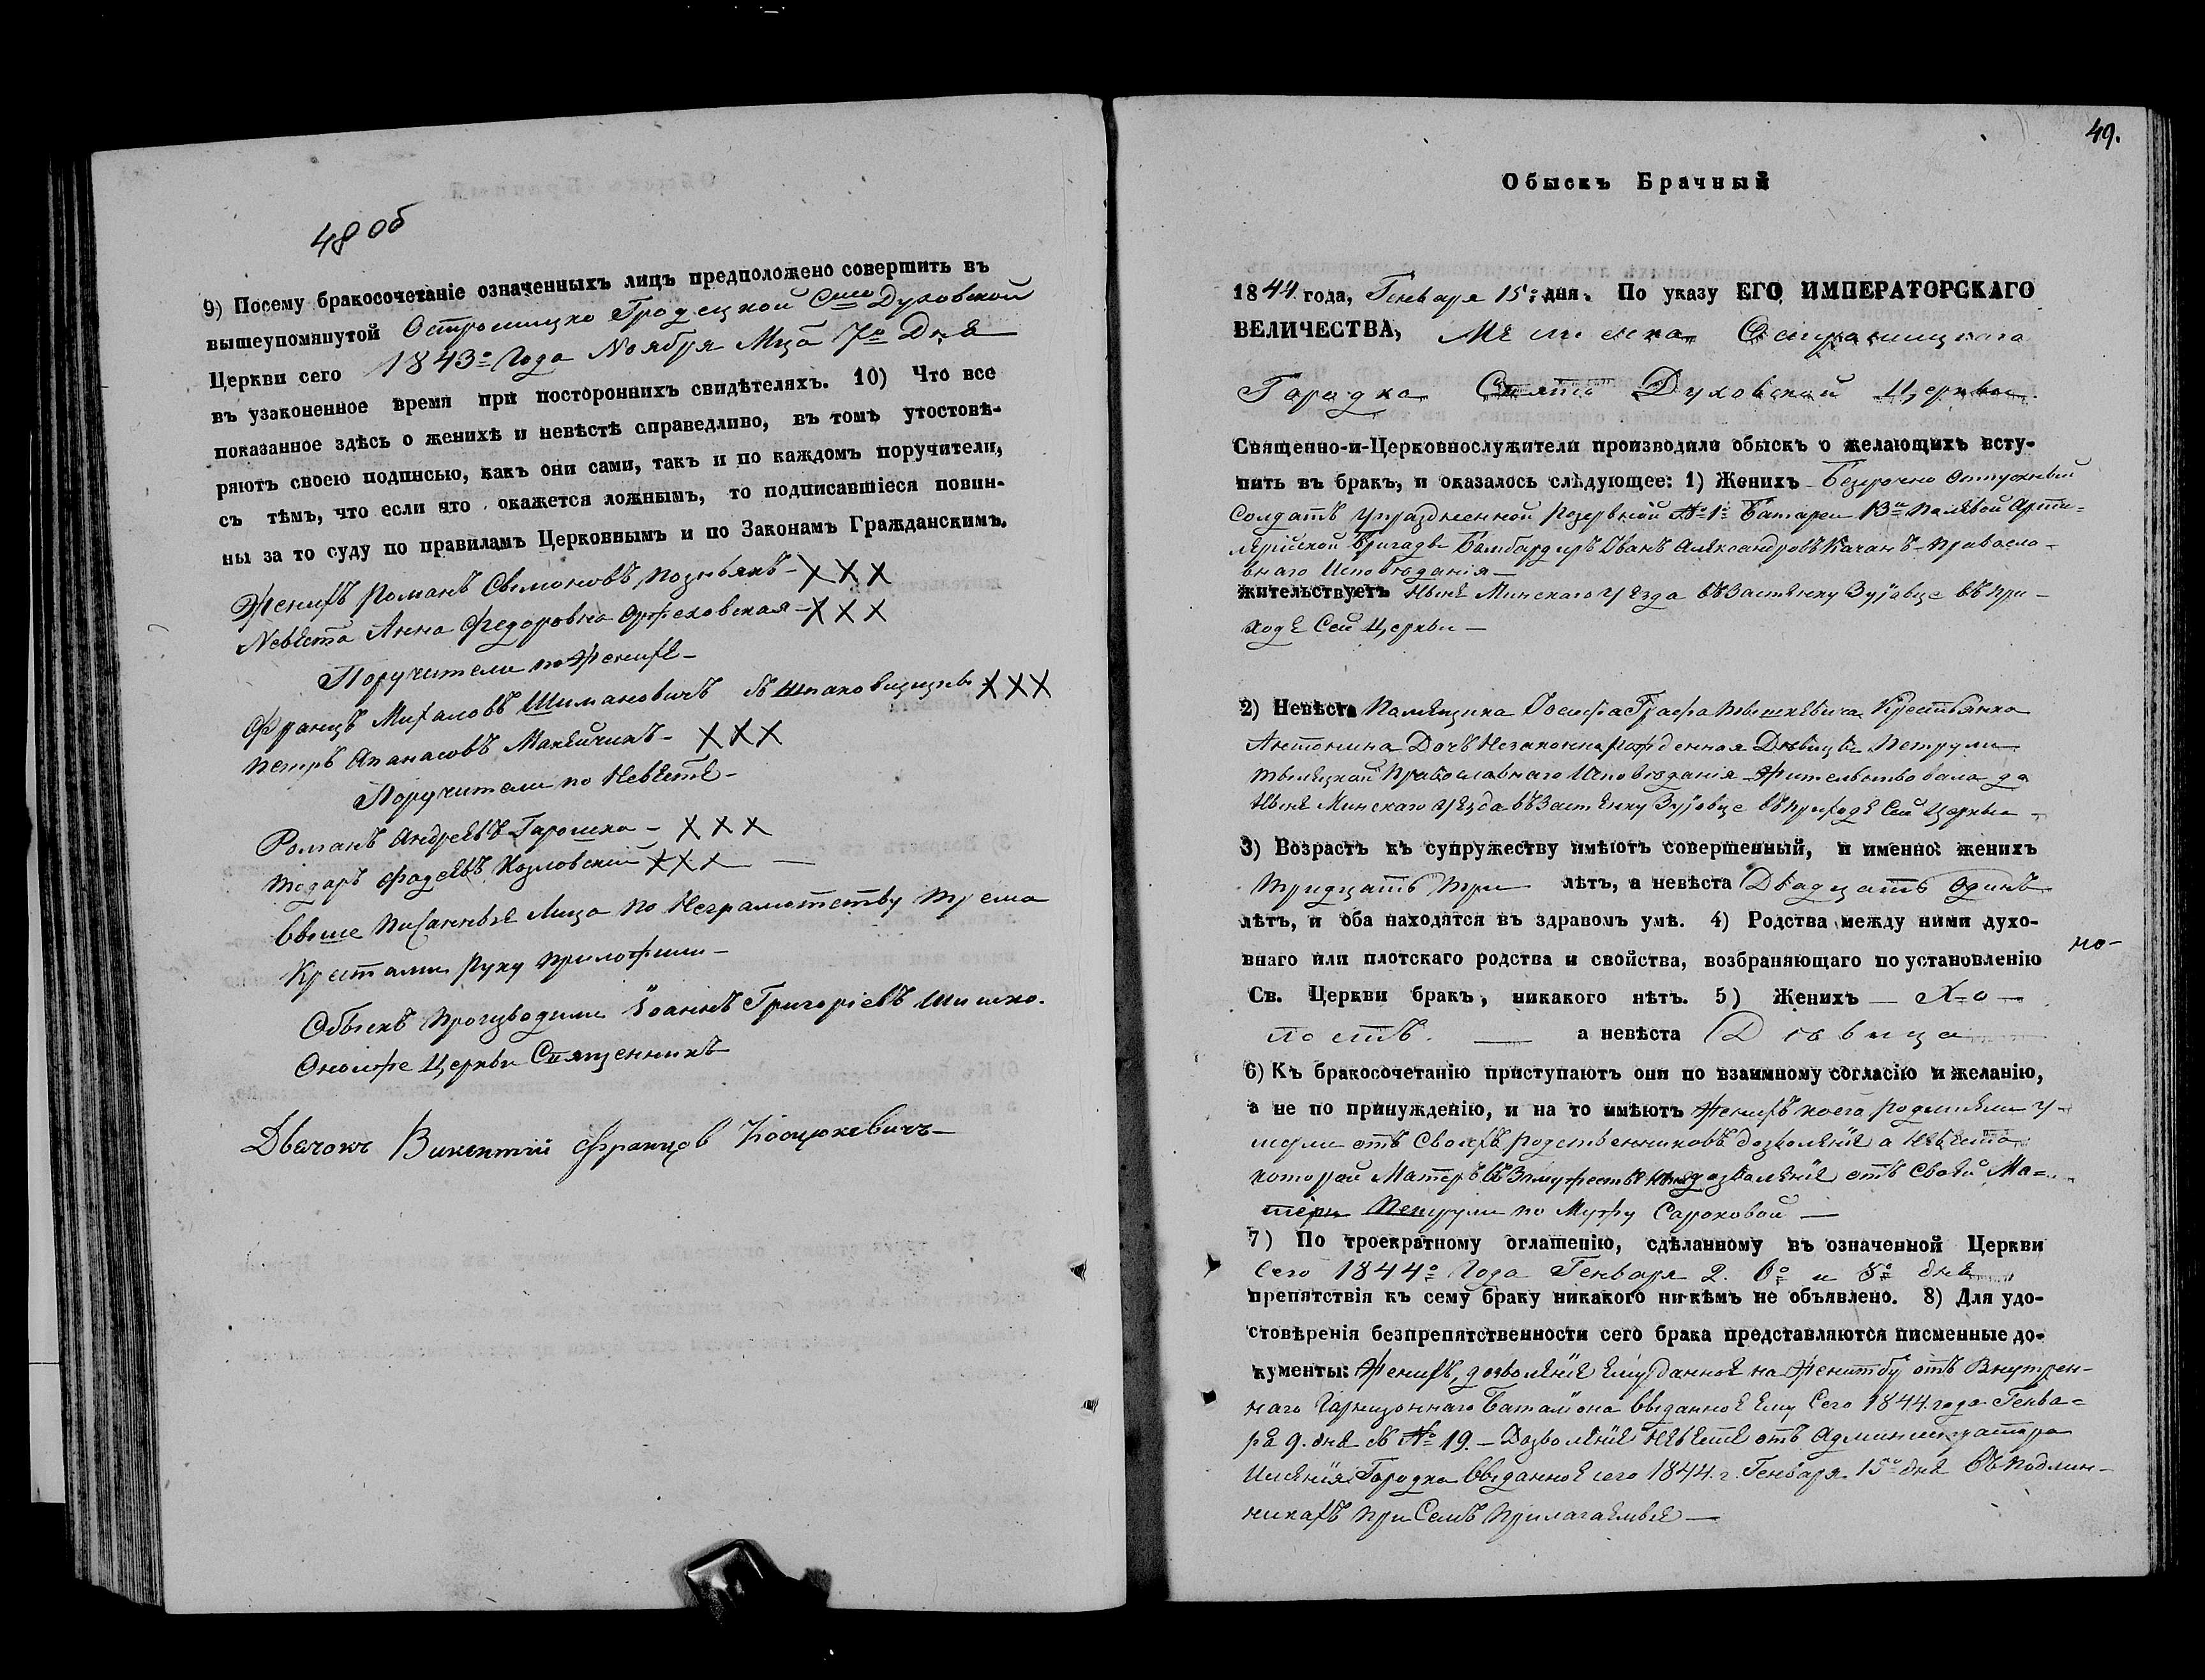 48 об
9) Посему бракосочетаніе означенныхъ лицъ предположено совершить въ
вышеупомянутой Острошицко Гродецкой Сто Духовской
Церкви сего 1843го Года Ноября Мца 7го Дня
въ узаконенное время при постороннихъ свидѣтеляхъ. 10) Что все
показанное здѣсь о женихѣ и невѣстѣ справедливо, въ томъ утостовѣ-
ряютъ своею подписью, какъ они сами, такъ и по каждомъ поручители,
съ тѣмъ, что если что окажется ложнымъ, то подписавшіеся повин-
ны за то суду по правиламъ Церковнымъ и по Законамъ Гражданскимъ.
Женихъ Романъ Симоновъ Познякъ – XXX
Невѣста Анна Федоровна Оржеховская – XXX
Поручители по Женихѣ –
Францъ Михаловъ Шимановичъ XXX
Петръ Апанасовъ Макейчикъ – XXX
Поручители по Невѣстѣ –
Романъ Андреевъ Гарошко – XXX
Тодаръ Фадеевъ Козловскій XXX –
Выше писанные Лица по Неграмотству трема
Крестами руку приложили –
Обыскъ производили Іоаннъ Григоріевъ Шишко.
Оной же Церкви Священникъ
Дьячокъ Викентій Францов Коцюкевичъ –
49.
Обыскъ Брачный
1844 года, Генваря 15го дня. По указу ЕГО ИМПЕРАТОРСКАГО
ВЕЛИЧЕСТВА, Местечка Острошицкаго
Городка Свято Духовской Церкви
Священно-и-Церковнослужители производили обыскъ о желающихъ всту-
пить въ бракъ, и оказалось слѣдующее: 1) Женихъ – Безсрочно Отпускный
Солдатъ Упраздненной Резервной № 1й Батареи 13й Полевой Арти-
лерійской Бригады Бомбардиръ Иванъ Александровъ Качанъ – Правосла-
внаго Исповѣданія –
жительствуетъ Ныне Минскаго уезда въ Застенку Зуёвце въ при-
ходе Сей Церкви –
2) Невѣста Помещика Іосифа Графа Тышкевича Крестьянка
Антонина Дочь Незаконно рожденная Девицы Петрули
Православнаго Исповѣданія – Жительствовала до
Ныне Минскаго уезда въ Застенку Зуёвце въ приходе Сей Церкви –
3) Возрастъ къ супружеству имѣютъ совершенный, и именно: женихъ
тридцать три лѣтъ, а невѣста Двадцать Одинъ
лѣтъ, и оба находятся въ здравомъ умѣ. 4) Родства между ними духо-
внаго или плотскаго родства и свойства, возбраняющаго по установленію
Св. Церкви бракъ, никакого нѣтъ. 5) Женихъ – Хо –
но-
лостъ. – а невѣста Дѣвица
6) Къ бракосочетанію приступаютъ они по взаимному согласію и желанію,
а не по принужденію, и на то имѣютъ Женихъ коего родители у-
мерли отъ Своихъ родственниковъ дозволеніе а Невѣста
которой Матерь въ Замужестве дозволеніе отъ Своей Ма-
тери Петрули по Мужу Сароковой –
7) По троекратному оглашенію, сдѣланному въ означенной Церкви
Сего 1844го Года Генваря 2. 6го и 8го дня
препятствія къ сему браку никакого ни-кѣмъ не объявлено. 8) Для удо-
стовѣренія безпрепятственности сего брака представляются писменные до-
кументы: Женихъ, дозволеніе ему данное на Женитбу отъ Внутрен-
наго Гарнизоннаго Баталіона выданное ему Сего 1844. года Генва-
ря 9. дня № 19. – Дозволеніе Невесте отъ Администратора
Именія Городка выданное сего 1844. г. Генваря 15го дня Въ Подлин-
никахъ при Семъ Прилагаемые –